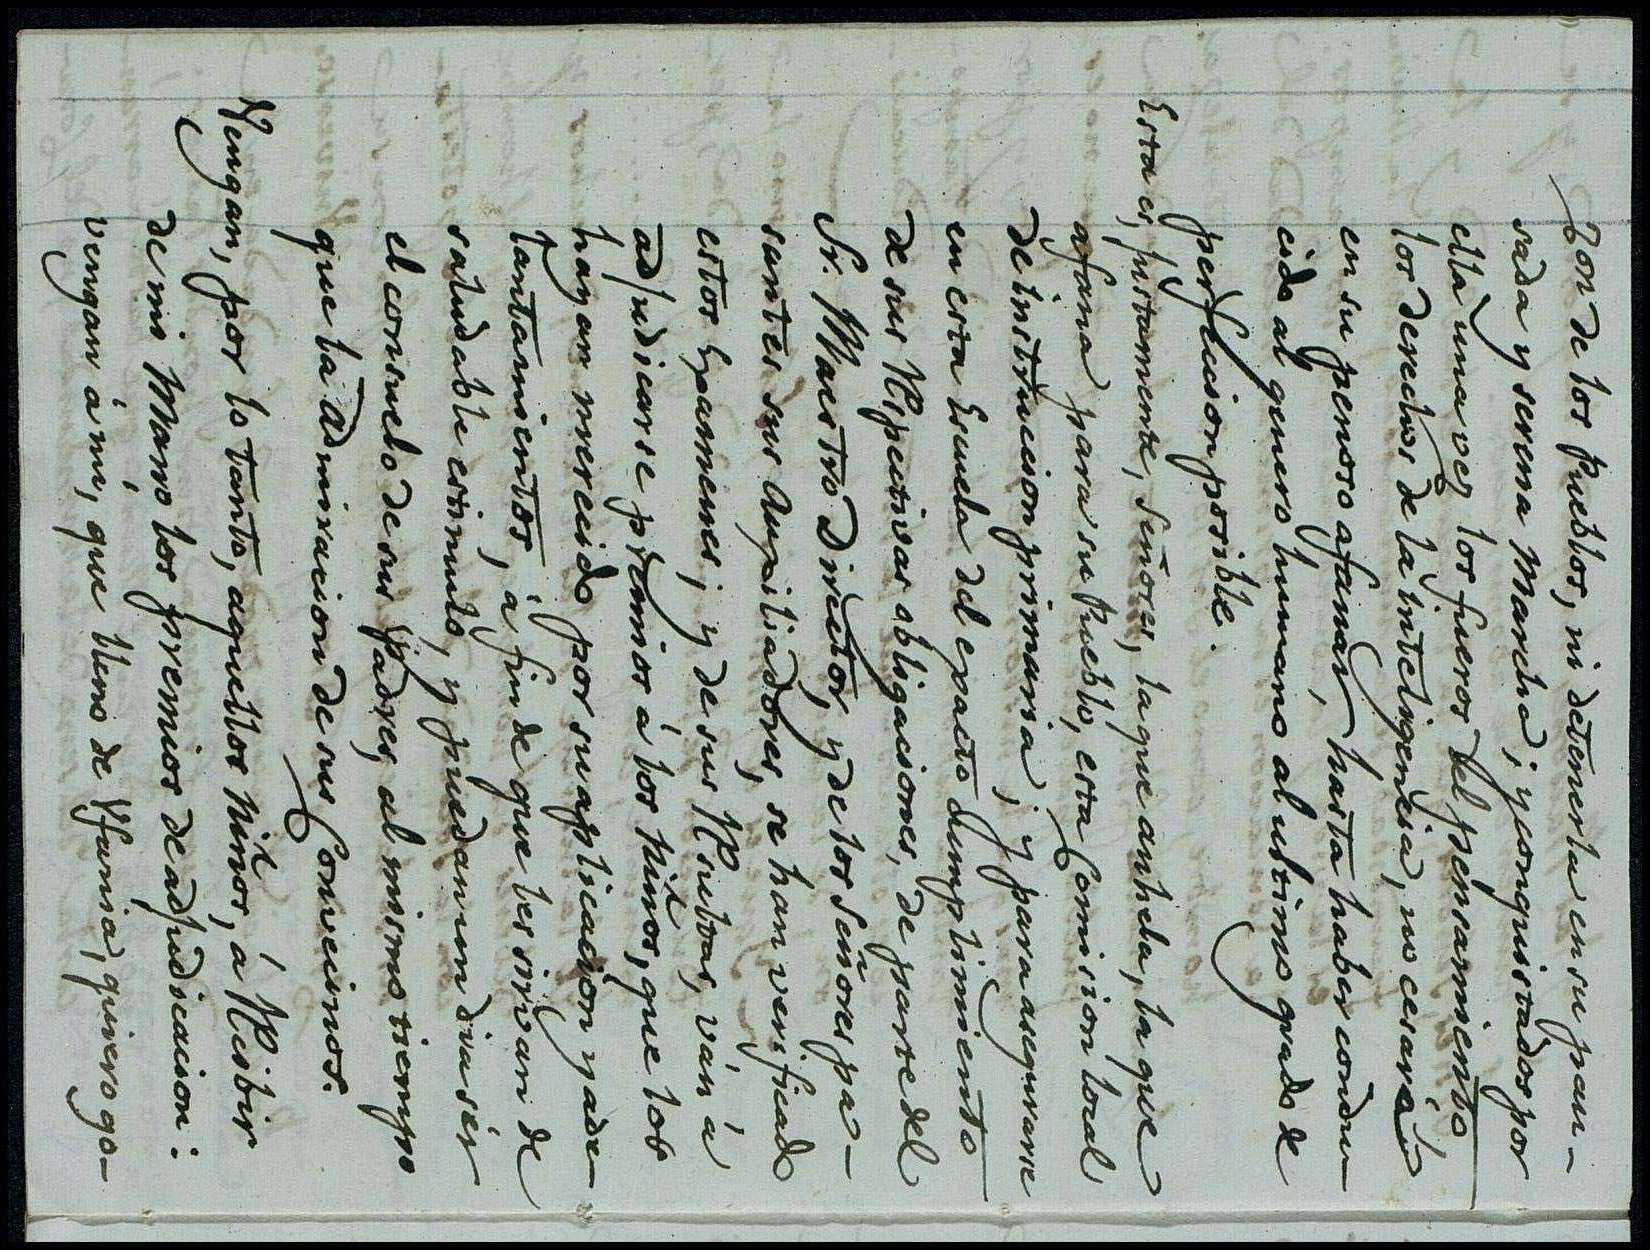 zon de los Pueblos, ni detenerla en su pau-
sada y serena Marcha; y conquistados por
ella una vez los fueros del pensamiento
los derechos de la inteligencia, no cesará
en su penoso afanar, hasta haber condu-
cido al genero humano al ultimo grado de
perfeccion posible.
Esta es, justamente, señores, la que anhela, la que
afana para su Pueblo, esta Comision local
de instruccion primaria; y para asegurarse
en esta Escuela del exacto cumplimiento
de sus Respectivas obligaciones, de parte del
Sr. Maestro Director, y de los Señores pa-
santes sus Auxiliadores, se han verificado
estos Exámenes; y de sus Resultas, ván á
adjudicarse premios á los Niños, que los
hayan merecido por su aplicacion y ade-
lantamientos, á fin de que les sirvan de
saludable estimulo, y puedan un dia sér
el consuelo de sus Padres, al mismo tiempo
que la admiracion de sus Convecinos.
Vengan, por lo tanto, aquellos Niños, á Recibir
de mi Mano los premios de adjudicacion:
vengan á mi, que lleno de Ufania, quiero go-